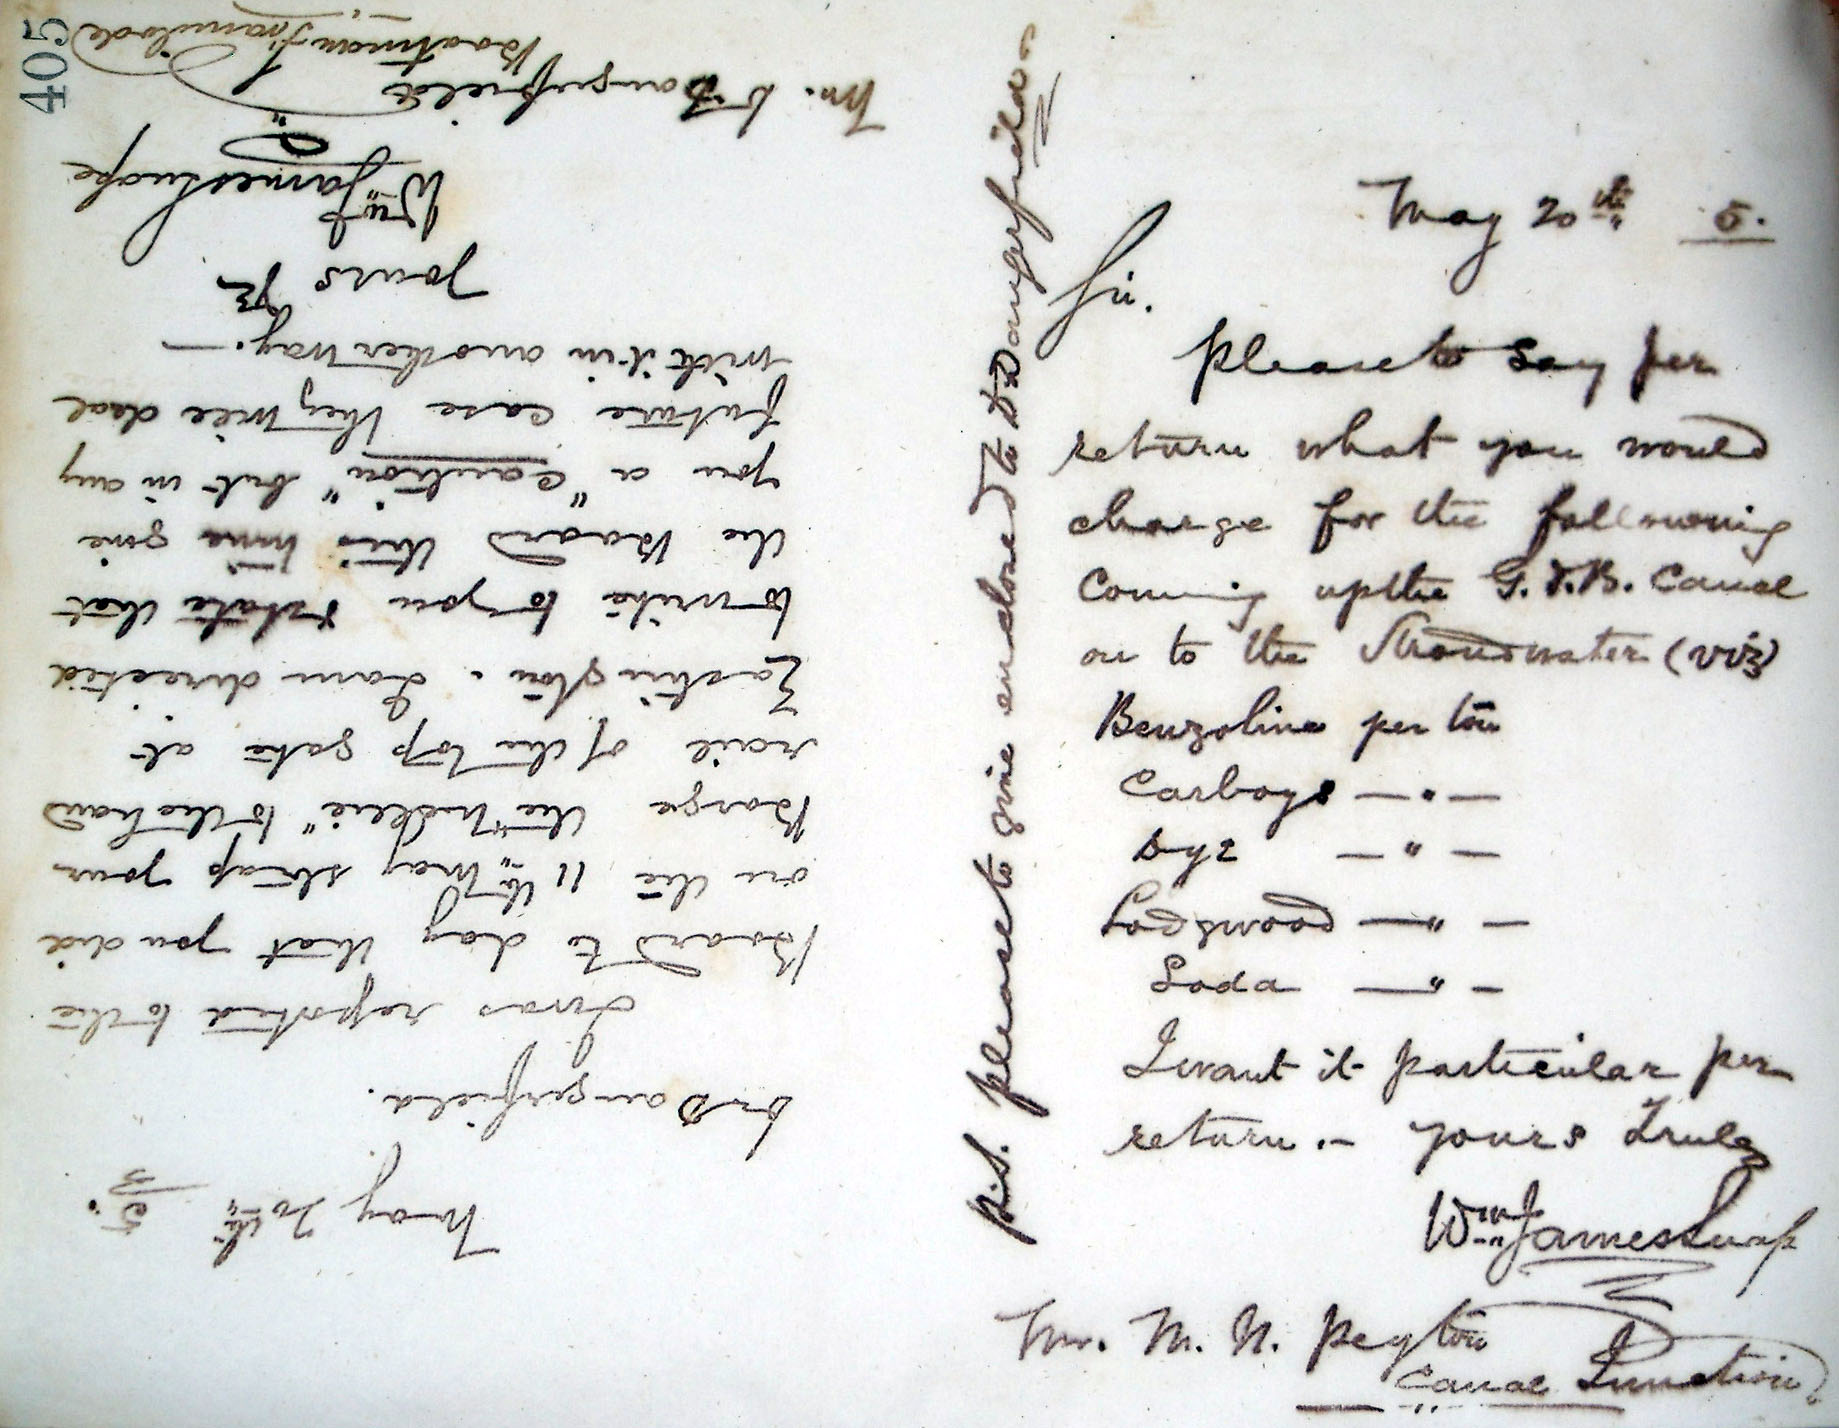 405
May 20th 5.
Sir.
Please to say per
return what you would
charge for the following
Coming up the G. & B. Canal
on to the Stroudwater (viz)
Benzoline per ton
Carboys — " —
Dye — " —
Lodgwood — " —
Soda — " —
I want it particular per
return. – yours Truly
Wm James Snape
Mr. M. N. Peyton
Canal Junction
P.S. please to give enclosed to Dangerfield
May 20th 5.
Dangerfield.
I was reported to the
Board to day that you did
on the 11th May strap your
Barge the "Nellie" to the hand
rail of the top gate at
Eastington. I am directed
to write to you & state that
the Board this time give
you a "Caution" but in any
future case they will deal
with it in another way. —
yours &c
Wm James Snape
Mr. Dangerfield
Boatman Framilode